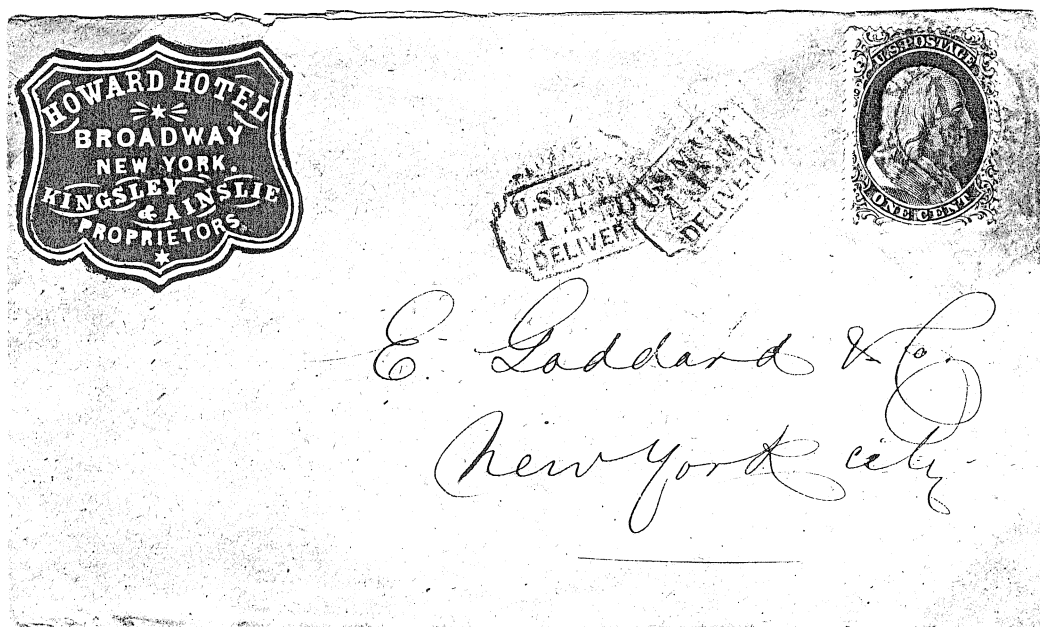 HOWARD HOTEL
BROADWAY
NEW YORK.
KINGSLEY
& AINSLIE
PROPRIETORS.
U.S. MAIL
1
DELIVERY
DELIVERY
U.S. POSTAGE
ONE CENT
E. Goddard & Co.
New York City